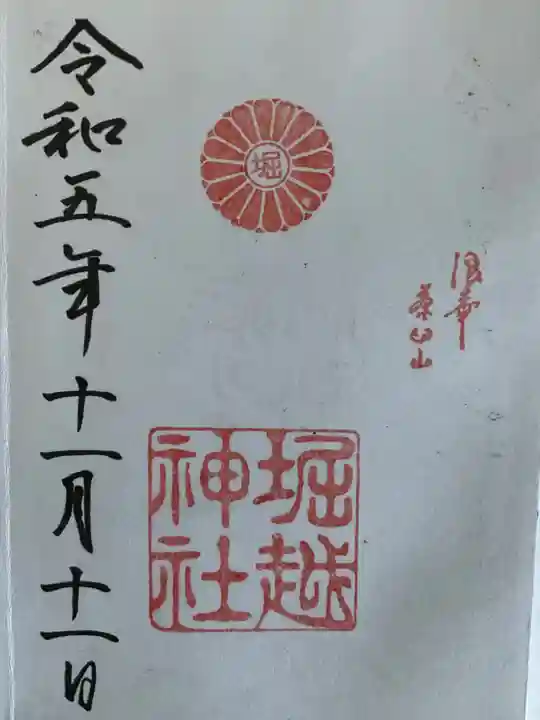 浪華
茶臼山
堀
堀越
神社
令和五年十一月十一日